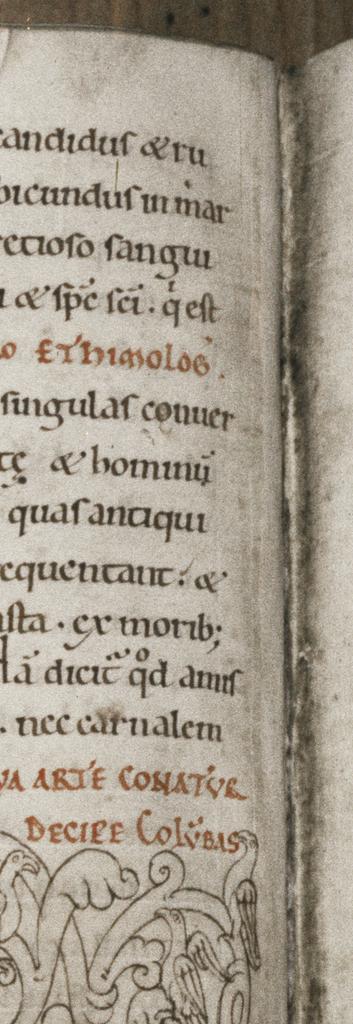 candidus & ru
bicundus in mar
precioso sangui
& sp̄c sc̄i . q̇ est
EThimolog̓ .
singulas conuer
& hominū
quas antiqui
requentant : &
. ex morib;
dicit̃ qd̊ amis
. nec carnalem
ARTE CONATVR
DECIPE COLV̄BAS